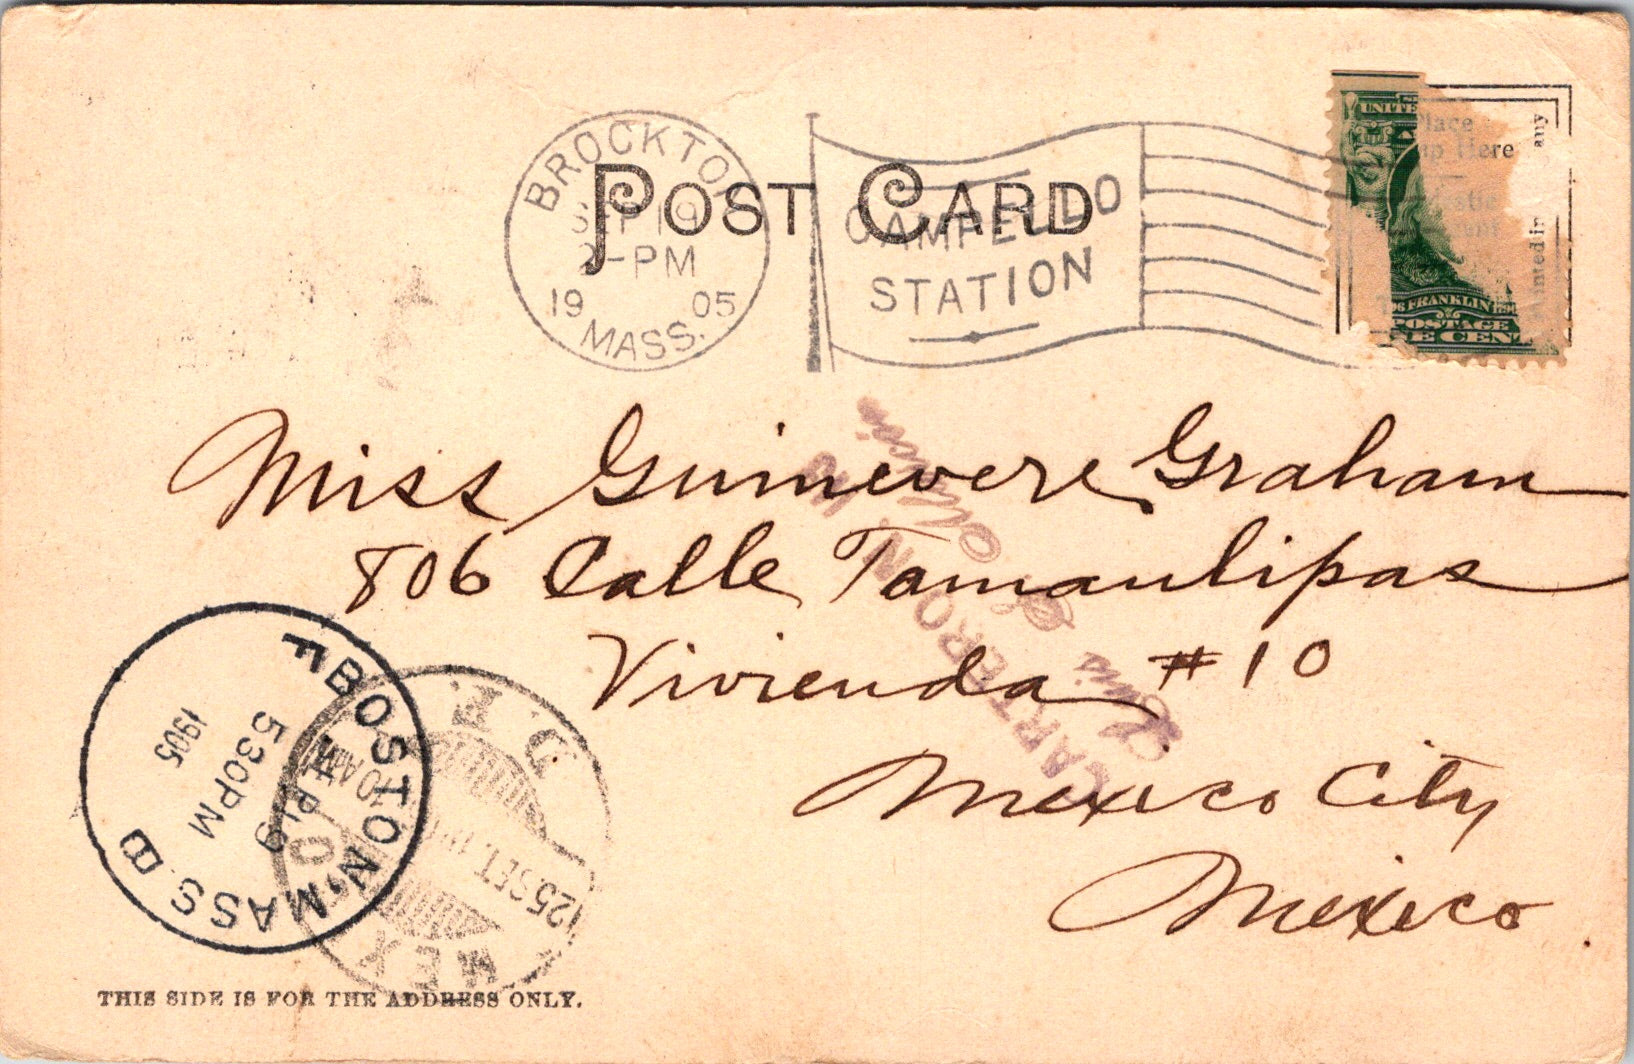 POST CARD
BROCKTON
SEP 19
2-PM
19 05
MASS.
CAMPELLO
STATION
UNITE
Place
Here
any
FRANKLIN
POSTAGE
Miss Guinevere Graham
806 Calle Tamaulipas
Vivienda #10
Mexico City
Mexico
CARTERO N.
BOSTON, MASS. B
F
530PM
1905
MEX
D.F.
10 AM
25. SET.
THIS SIDE IS FOR THE ADDRESS ONLY.